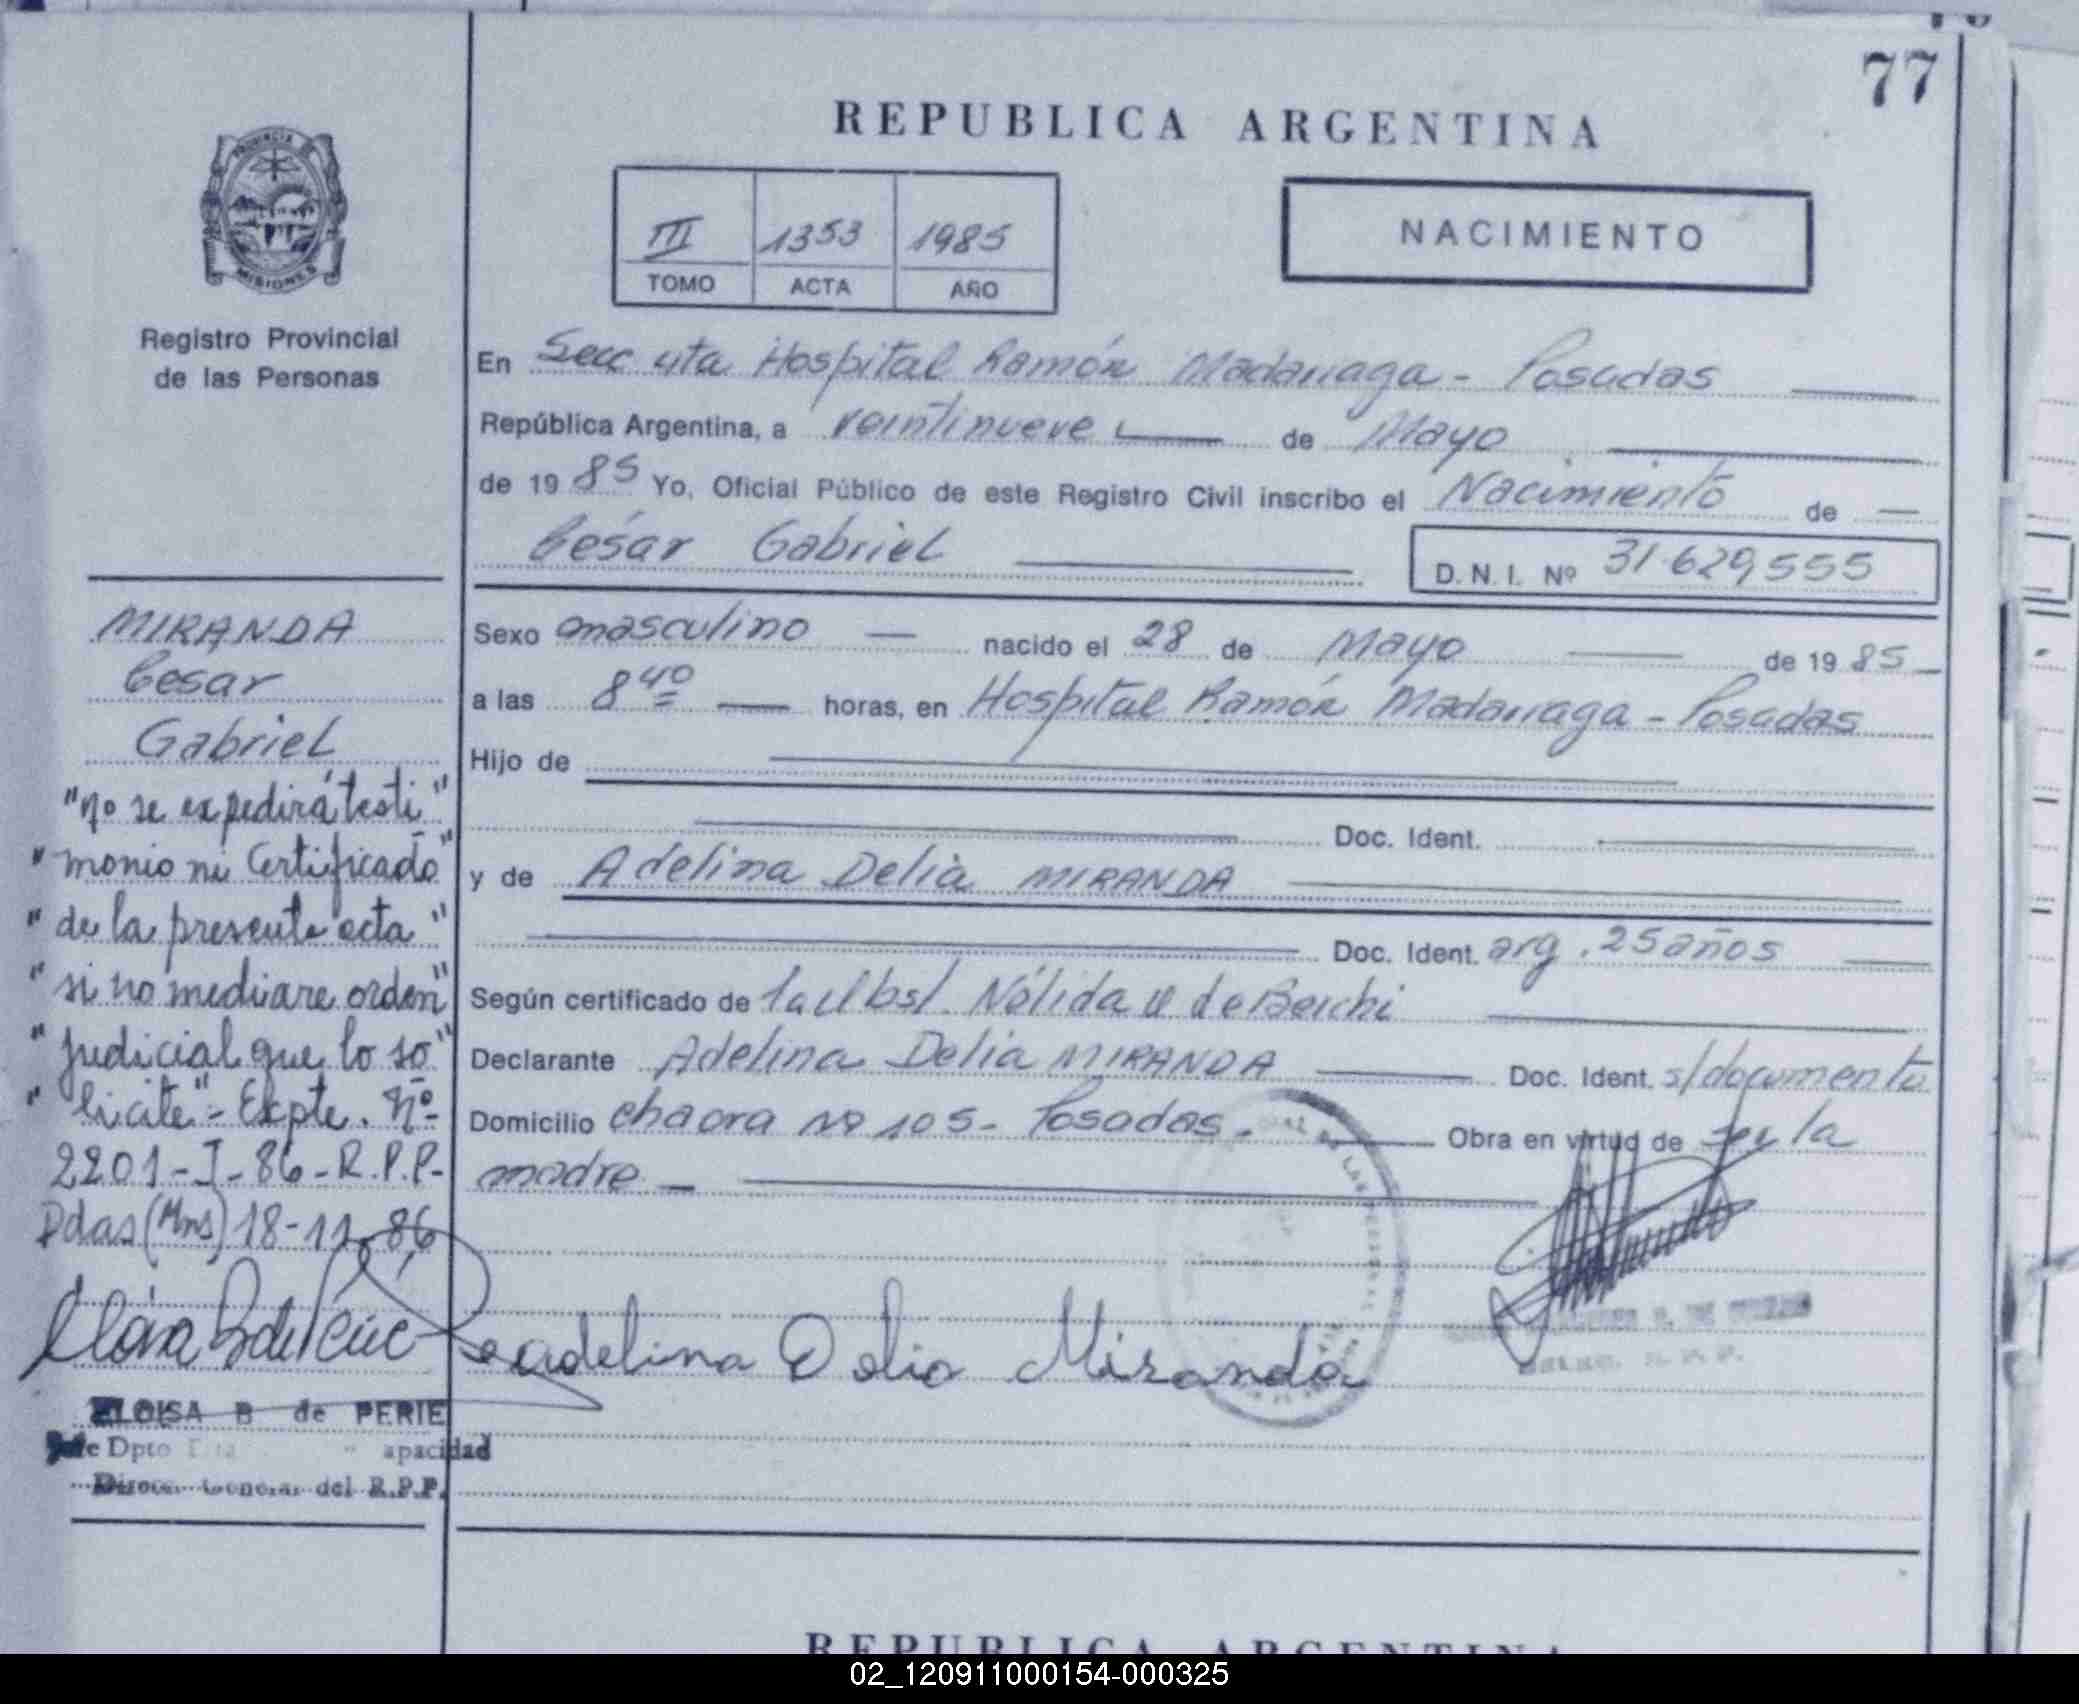 77
REPUBLICA ARGENTINA
PROVINCIA DE
MISIONES
III 1353 1985
TOMO ACTA AÑO
NACIMIENTO
Registro Provincial
de las Personas
En Secc 4ta Hospital Ramón Madariaga - Posadas
República Argentina, a veintinueve de Mayo
de 1985 Yo, Oficial Público de este Registro Civil inscribo el Nacimiento de
César Gabriel D.N.I. Nº 31.629,555
Sexo masculino nacido el 28 de Mayo de 1985
a las 8 40 horas, en Hospital Ramón Madariaga - Posadas
Hijo de
Doc. Ident.
y de Adelina Delia MIRANDA
Doc. Ident. arg. 25 años
Según certificado de la Obst. Nélida de
Declarante Adelina Delia MIRANDA Doc. Ident. s/documento
Domicilio chacra Nº 105 - Posadas. Obra en virtud de ser la
madre
Adelina Delia Miranda
MIRANDA
Cesar
Gabriel
"no se expedirá testi"
"monio ni Certificado"
"de la presente acta"
"si no mediare orden"
"judicial que lo so"
"licite" - Expte. Nº
2201-I-86-R.P.P-
Pdas (Mns) 18-11-86
ELOISA B de PERIE
Jefe Dpto apacidad
General del R.P.P.
REPUBLICA ARGENTINA
02_120911000154-000325